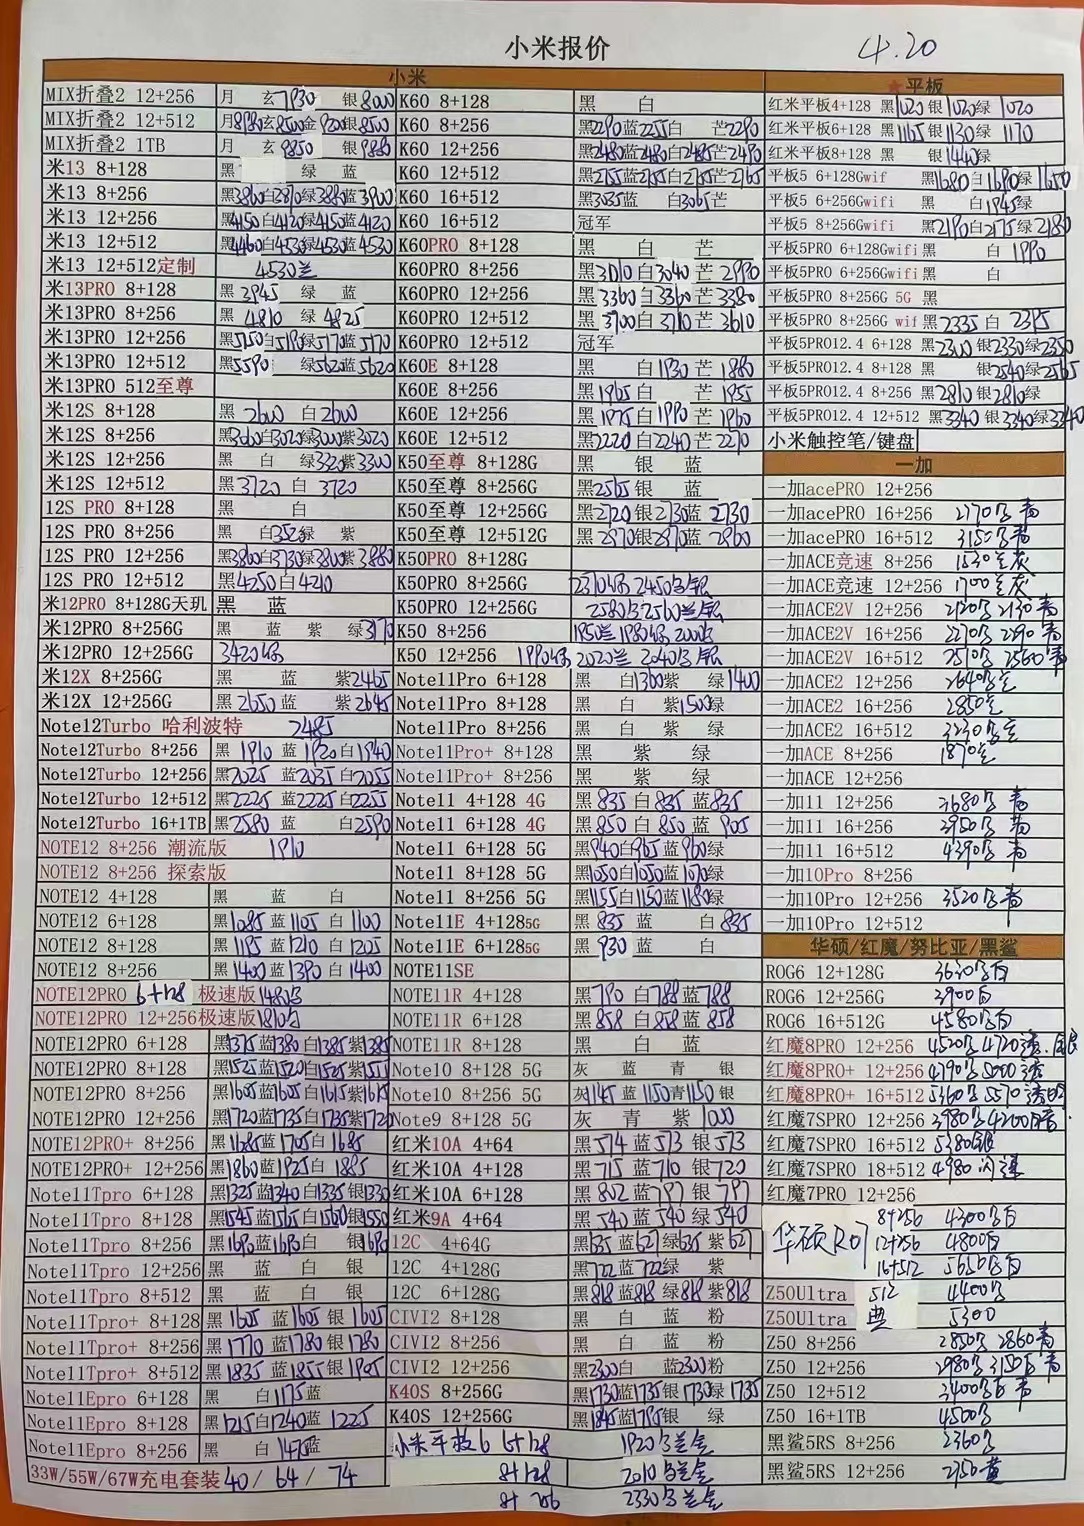 小米报价 4.20
小米
MIX折叠2 12+256 月 玄7930 银8000
MIX折叠2 12+512 月8980玄8500金9200银8500
MIX折叠2 1TB 月 玄9850 银9880
米13 8+128 黑 绿 蓝
米13 8+256 黑3860白3870绿3880蓝3900
米13 12+256 黑4150白4120绿4150蓝4120
米13 12+512 黑4460白4530绿4530蓝4530
米13 12+512定制 4530兰
米13PRO 8+128 黑3945 绿 蓝
米13PRO 8+256 黑4810 绿4825
米13PRO12+256 黑5150白5190绿5170蓝5170
米13PRO 12+512 黑5590 绿5620蓝5620
米13PRO 512至尊
米12S 8+128 黑2600 白2600
米12S 8+256 黑3060白3020绿3000紫3020
米12S 12+256 黑 白 绿3320紫3300
米12S 12+512 黑3720 白3720
12S PRO 8+128 黑 白
12S PRO 8+256 黑 白3520绿 紫
12S PRO 12+256 黑3860白3730绿3800紫3880
12S PRO 12+512 黑4250白4210
米12PRO 8+128G天玑 黑 蓝
米12PRO 8+256G 黑 蓝 紫 绿3170
米12PRO 12+256G 3420绿
米12X 8+256G 黑 蓝 紫2465
米12X 12+256G 黑2650 蓝 紫2645
Note12Turbo 哈利波特 2485
Note12Turbo 8+256 黑1910 蓝1920白1940
Note12Turbo 12+256 黑2025 蓝2035白2055
Note12Turbo 12+512 黑2225 蓝2225白2255
Note12Turbo 16+1TB 黑2580 蓝 白2590
NOTE12 8+256 潮流版 1910
NOTE12 8+256 探索版
NOTE12 4+128 黑 蓝 白
NOTE12 6+128 黑1085蓝1105白1100
NOTE12 8+128 黑1195蓝1210白1205
NOTE12 8+256 黑1400蓝1390白1400
NOTE12PRO 6+128 极速版1480
NOTE12PRO 12+256极速版1810
NOTE12PRO 6+128 黑1375蓝1380白1385紫1385
NOTE12PRO 8+128 黑1525蓝1520白1525紫1515
NOTE12PRO 8+256 黑1605蓝1605白1615紫1615
NOTE12PRO 12+256 黑1720蓝1735白1735紫1720
NOTE12PRO+ 8+256 黑1685蓝1705白1685
NOTE12PRO+ 12+256 黑1860蓝1925白1885
Note11Tpro 6+128 黑1325蓝1340白1335银1330
Note11Tpro 8+128 黑1545蓝1565白1560银1550
Note11Tpro 8+256 黑1690蓝1690白 银1690
Note11Tpro 12+256 黑 蓝 白 银
Note11Tpro 8+512 黑 蓝 白 银
Note11Tpro+ 8+128 黑1605 蓝1605 银1605
Note11Tpro+ 8+256 黑1770 蓝1780 银1780
Note11Tpro+ 8+512 黑1835 蓝1855 银1905
Note11Epro 6+128 黑 白1175蓝
Note11Epro 8+128 黑1215白1240蓝1225
Note11Epro 8+256 黑 白1475蓝
33W/55W/67W充电套装 40/64/74
K60 8+128 黑 白
K60 8+256 黑2290蓝2255白 芒2290
K60 12+256 黑2480蓝2480白2485芒2490
K60 12+512 黑2755蓝2755白2755芒2765
K60 16+512 黑3035蓝 白3065芒
K60 16+512 冠军
K60PRO 8+128 黑 白 芒
K60PRO 8+256 黑3010白3040芒2990
K60PRO 12+256 黑3360白3360芒3380
K60PRO 12+512 黑3700白3710芒3610
K60PRO 12+512 冠军
K60E 8+128 黑 白1930芒1880
K60E 8+256 黑1965 芒1955
K60E 12+256 黑1975白1990芒1960
K60E 12+512 黑2220白2240芒2270
K50至尊 8+128G 黑 银 蓝
K50至尊 8+256G 黑2565银 蓝
K50至尊 12+256G 黑2720银2730蓝2730
K50至尊 12+512G 黑2870银2870蓝2860
K50PRO 8+128G
K50PRO 8+256G 2370绿2450 银
K50PRO 12+256G 2580 2560兰银
K50 8+256 1950兰1980绿2000
K50 12+256 1990绿2020兰2040 银
Note11Pro 6+128 黑 白1360紫 绿1400
Note11Pro 8+128 黑 白 紫1500绿
Note11Pro 8+256 黑 白 紫 绿
Note11Pro+ 8+128 黑 紫 绿
Note11Pro+ 8+256 黑 紫 绿
Note11 4+128 4G 黑835白835蓝835
Note11 6+128 4G 黑850白850蓝905
Note11 6+128 5G 黑940白965蓝960绿
Note11 8+128 5G 黑1050白1050蓝1070绿
Note11 8+256 5G 黑1155白1150蓝1180绿
Note11E 4+1285G 黑835 蓝 白835
Note11E 6+1285G 黑930 蓝 白
NOTE11SE
NOTE11R 4+128 黑790白788蓝788
NOTE11R 6+128 黑858白858蓝858
NOTE11R 8+128 黑 白 蓝
Note10 8+128 5G 灰 蓝 青 银
Note10 8+256 5G 灰1145蓝1150青1150银
Note9 8+128 5G 灰 青 紫1000
红米10A 4+64 黑574蓝573银573
红米10A 4+128 黑715蓝710银720
红米10A 6+128 黑802蓝797银797
红米9A 4+64 黑540蓝540绿540
12C 4+64G 黑635蓝627绿635紫627
12C 4+128G 黑722蓝722绿 紫
12C 6+128G 黑818蓝818绿818紫818
CIVI2 8+128 黑 白 蓝 粉
CIVI2 8+256 黑 白 蓝 粉
CIVI2 12+256 黑2300白 蓝2300粉
K40S 8+256G 黑1730蓝1735银1730绿1735
K40S 12+256G 黑1845蓝1795银 绿
小米平板6 6+128 1920 兰金
8+128 2010 兰金
8+256 2330 兰金
★平板
红米平板4+128 黑1020银1020绿1020
红米平板6+128 黑1165银1130绿1170
红米平板8+128 黑 银1440绿
平板5 6+128Gwif 黑1680白1690绿1650
平板5 6+256Gwifi 黑 白1945绿
平板5 8+256Gwifi 黑2190白2175绿2180
平板5PRO 6+128Gwifi 黑 白1990
平板5PRO 6+256Gwifi 黑 白
平板5PRO 8+256G 5G 黑
平板5PRO 8+256G wif 黑2335白2315
平板5PRO12.4 6+128 黑2300银2330绿2350
平板5PRO12.4 8+128 黑 银2540绿2565
平板5PRO12.4 8+256 黑2810银2810绿
平板5PRO12.4 12+512 黑3340银3340绿3340
小米触控笔/键盘
一加
一加acePRO 12+256
一加acePRO 16+256 2770 青
一加acePRO 16+512 3150 青
一加ACE竞速 8+256 1530 灰
一加ACE竞速 12+256 1700 灰
一加ACE2V 12+256 2120 2130青
一加ACE2V 16+256 2270 2290青
一加ACE2V 16+512 2510 2560青
一加ACE2 12+256 2640
一加ACE2 16+256 2850
一加ACE2 16+512 3230
一加ACE 8+256 1870
一加ACE 12+256
一加11 12+256 3680 青
一加11 16+256 3950 青
一加11 16+512 4390 青
一加10Pro 8+256
一加10Pro 12+256 3520 青
一加10Pro 12+512
华硕/红魔/努比亚/黑鲨
ROG6 12+128G 3630 白
ROG6 12+256G 3900白
ROG6 16+512G 4580 白
红魔8PRO 12+256 4520 4720透
红魔8PRO+ 12+256 4790 5000透
红魔8PRO+ 16+512 5460 5570透
红魔7SPRO 12+256 3980 4200
红魔7SPRO 16+512 5380银
红魔7SPRO 18+512 4980
红魔7PRO 12+256
华硕R07 8+256 4300 白
12+256 4800白
16+512 5650 白
Z50Ultra 512 4400
Z50Ultra 典 5300
Z50 8+256 2850 2860青
Z50 12+256 2980 3150青
Z50 12+512 3400 青
Z50 16+1TB 4500
黑鲨5RS 8+256 2360
黑鲨5RS 12+256 2750黄